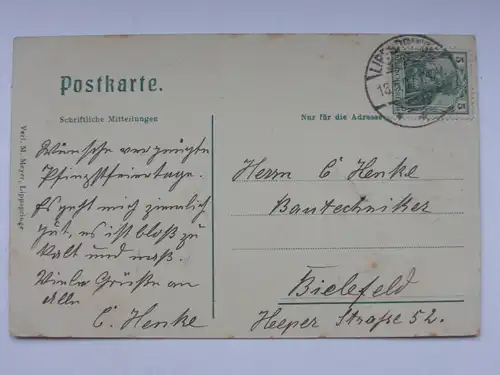 Postkarte.
Schriftliche Mitteilungen
Nur für die Adresse
Wünsche vergnügte
Pfingstfeiertage.
Es geht mich ziemlich
gut, es ist bloß zu
kalt und naß.
Viele Grüße an
alle
C. Henke
Herrn C Henke
Bautechniker
Bielefeld
Heeper Straße 52.
Verl. M. Meyer, Lippspringe
5
5